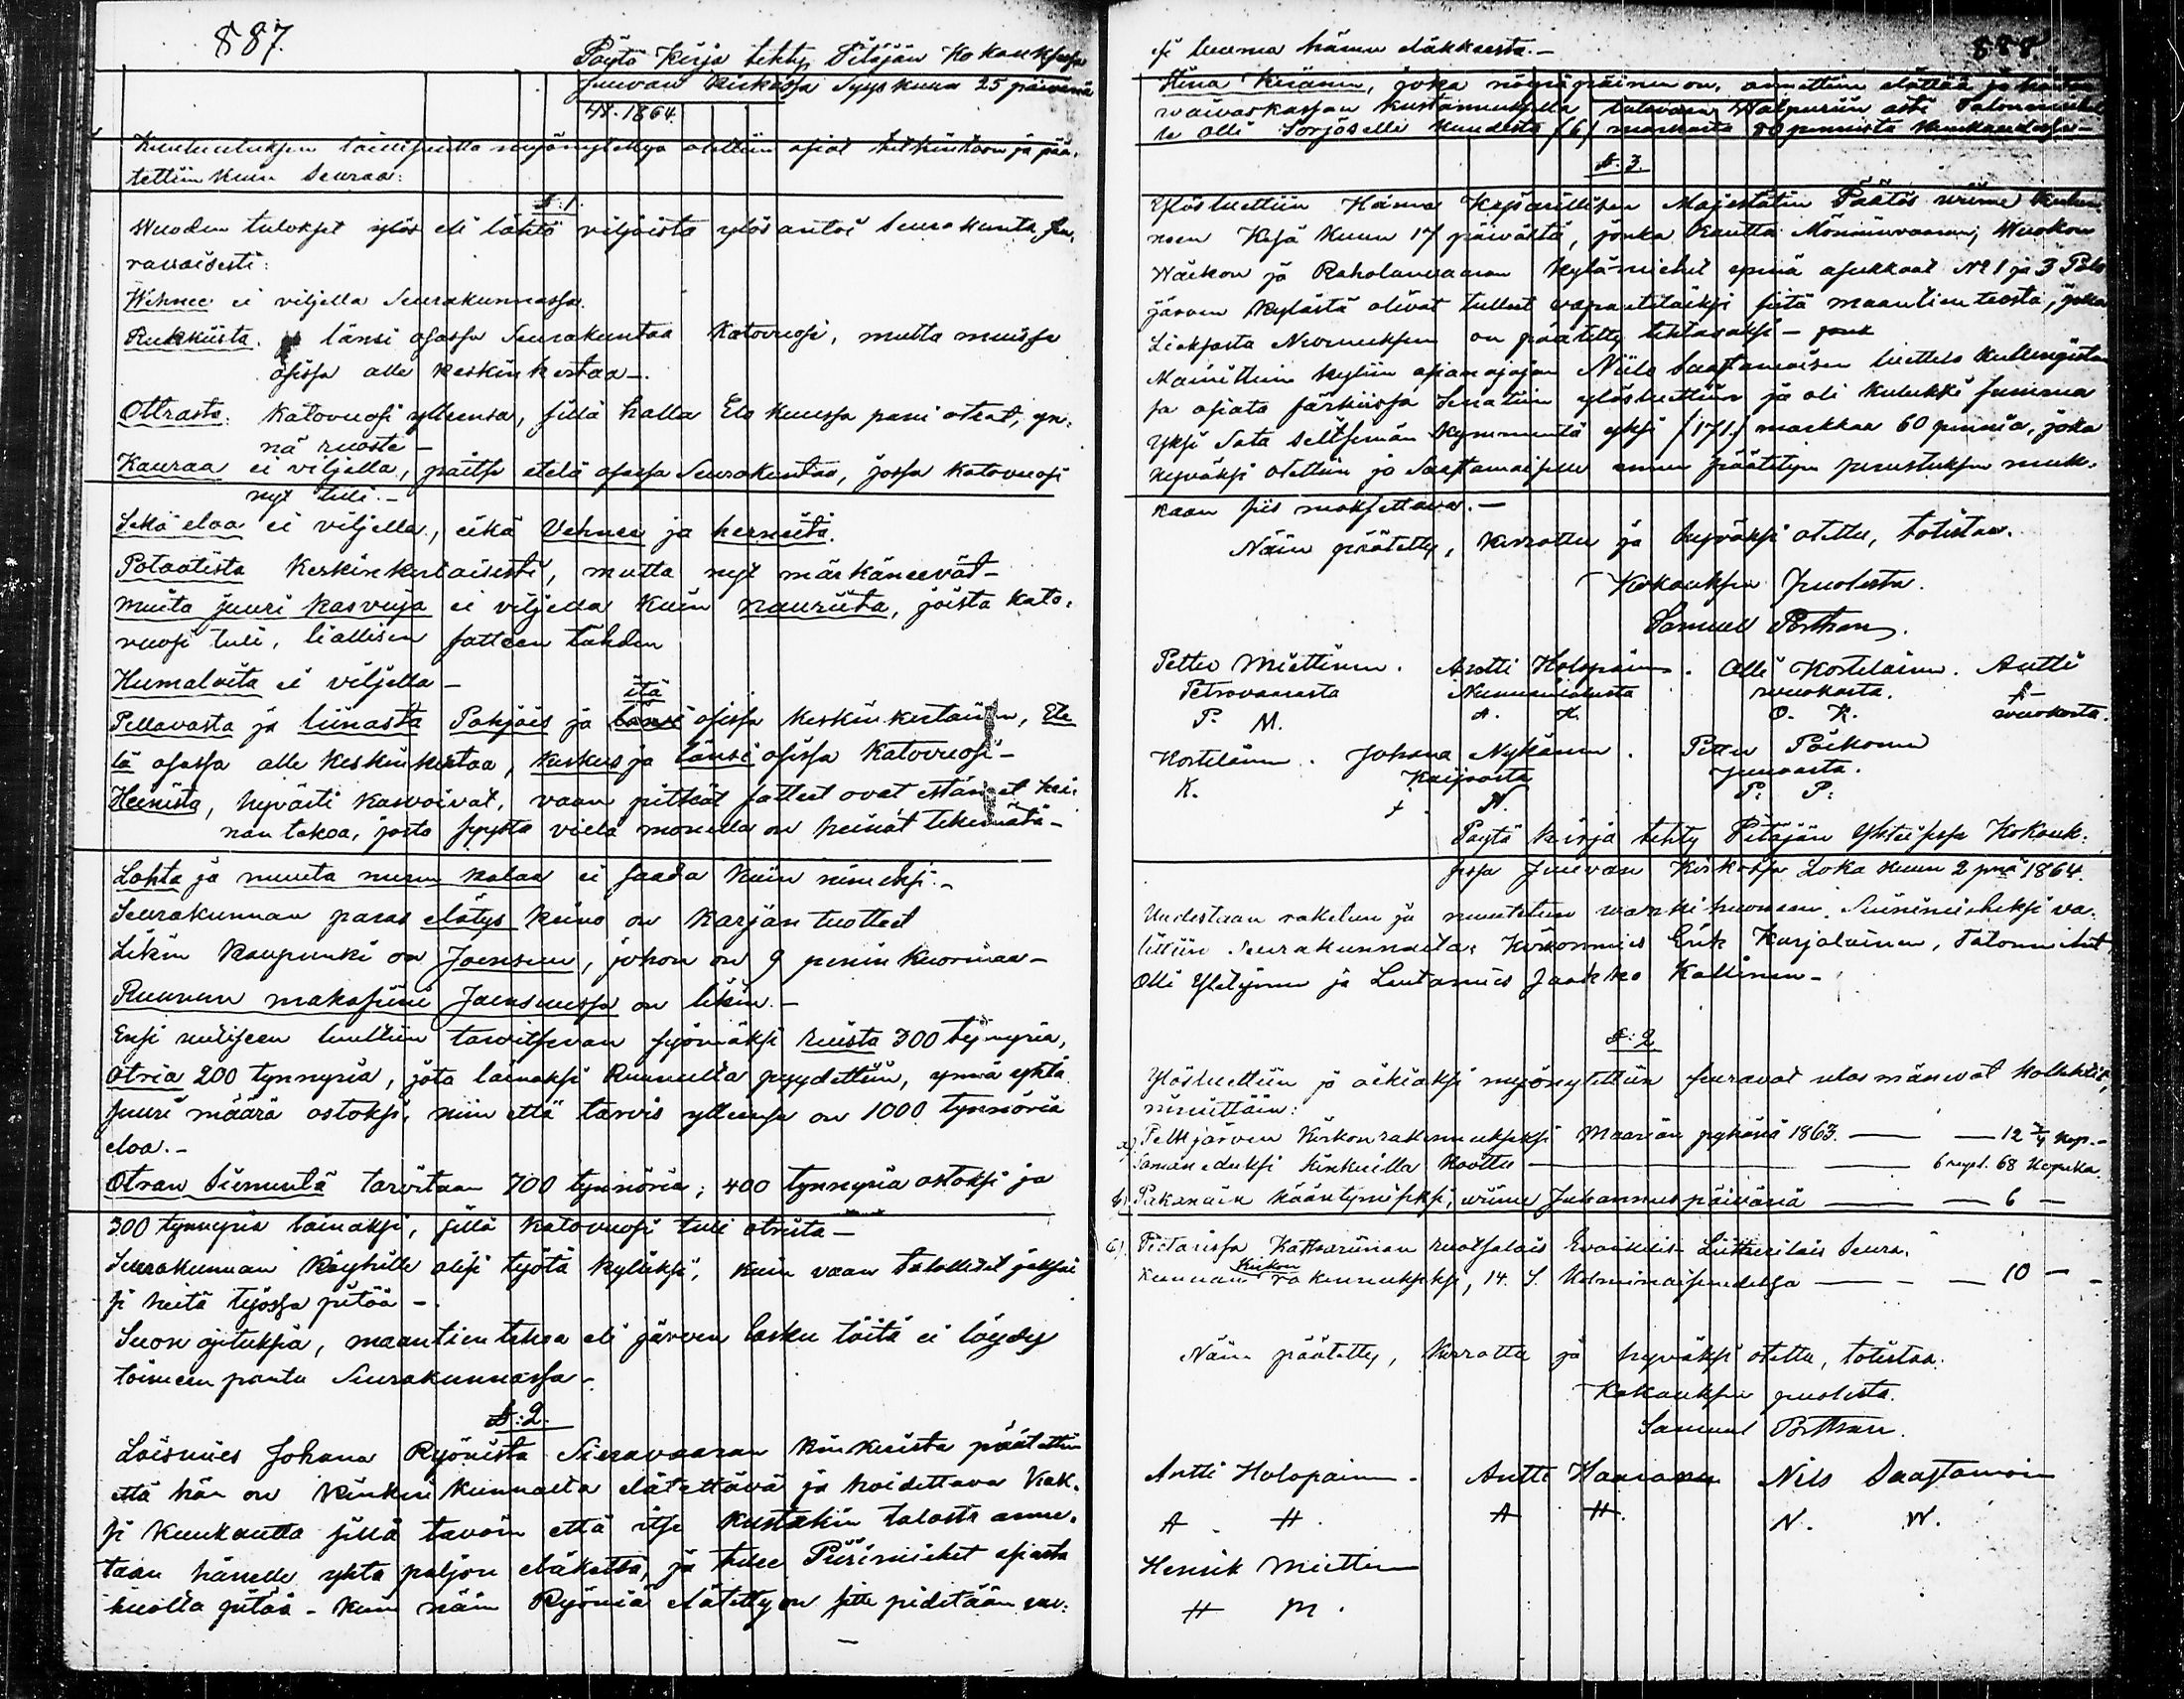 887.
Pöytä Kirja tehty Pitäjän Kokouksessa
Juuvan Kirkossa Syys kuun 25 päivänä
1864.
Kuulutuksen laillisuutta myönytettyä otettiin asiat tutkintoon ja pää-
tettiin kuin Seuraa:
§:1.
Wuoden tulokset ylös eli lähtö viljoista ylös antoi Seurakunta seu-
raavaisesti:
Wehnee ei viljellä Seurakunnassa.
Rukkiista. länsi osassa Seurakuntaa Katovuosi, mutta muissa
osissa alle keskinkertaa —
Ottrasta. Katovuosi yllensä, sillä halla Elo kuussa pani otrat, yn-
nä ruoste —
Kauraa ei viljellä, paitse etelä osassa Seurakuntaa, jossa Katovuosi
nyt tuli. —
Sekä eloa ei viljellä, eikä Vehnee ja herneitä.
Potaatista Keskinkertaisesti, mutta nyt märkäneevät —
Muita juuri kasvuja ei viljellä kuin nauriita, joista kato-
vuosi tuli, liiallisen satteen tähden
Humaloita ei viljellä —
itä
Pellavasta ja liinasta Pohjois ja länsi osissa keskinkertainen, Ete
lä osassa alle keskinkertaa, keskus ja länsi osissa Katovuosi —
Heinistä, hyvästi kasvoivat, vaan pitkät satteet ovat estäneet hei-
nän tekoa, josta syystä vielä monella on heinät tekemätä —
Lohta ja muuta muun kalaa ei saada kuin nimeksi. —
Seurakunnan paras elätys keino on Karjan tuotteet
Likin Kaupunki on Joensuu, johon on 9 penin kuormaa —
Ruunun makasiini Joensuussa on likin. —
Ensi uutiseen luultiin tarvitsevan syömäksi ruista 300 tynnyriä,
Otria 200 tynnyriä, jota lainaksi Ruunulta pyydettiin, ynnä yhtä
suuri määrä ostoksi, niin että tarvis yllensä on 1000 tynnöriä
eloa. —
Otran Siementä tarvitaan 700 tynnöriä; 400 tynnyriä ostoksi ja
300 tynnyriä lainaksi, sillä katovuosi tuli otrista —
Seurakunnan Köyhille olisi työtä kylliksi, kuin vaan talolliset jaksai
si heitä työssä pitää —
Suon ojituksia, maantien tekoa eli järven lasku töitä ei löydy
toimeen pantu Seurakunnassa —
§:2.
Loismies Johana Ryönistä Sieravaaran kinkerista päätettiin
että hän on Kinkeri kunnalta elätettävä ja hoidettava Kak-
si kuukautta sillä tavoin että itse kustakin talosta anne-
taan hänelle yhtä paljon eläkettä, ja tulee Piirimiehet asiasta
huolta pitää — kuin näin Ryöniä elätetty on sitte pidetään uu-
888
si summa hänen eläkkeestä. —
Stina Keränen, joka nögräpäinen on, annettiin elättää ja hoitaa
waivaskassan kustannuksella tulevaan Walpuriin asti Talonmiehel
le Olli Sorjoselle kuudesta (6) markasta 80 pennistä kuukaudessa —
§:3.
Ylösluettiin Hänen Keisarillisen Majestetin Päätös viime Kulu-
neen Kesä kuun 17 päivästä, jonka kautta Mönninvaaran, Wuokon
Waikon ja Raholanvaaran kylä-miehet ynnä asukkaat № 1 ja 3 Polo
järven kylästä olivat tulleet vapautetuiksi siitä maantien teosta, joka
Lieksasta Nurmeksen on päätetty tehtäväksi —
Mainittuin kyliin asianajajan Niilo Saastamoisen luettelo kulungistan
sa asiata särkiissä Senatiin ylösluettiin ja oli kulukki summa
Yksi Sata seitsemän kymmentä yksi (171) markkaa 60 penniä, joka
hyväksi otettiin ja Saastamoiselle ennen päätetyn perustuksen muk-
kaan siis maksettava. —
Näin päätetty, kerrottu ja hyväksi otettu, totistaa.
Kokouksen puolesta.
Samuel Porthan.
Petter Miettinen. Antti Holopainen. Olli Kortelainen. Antti
Petrovaarasta Nunnanlahesta wuokosta.
P. M. A. H. O. K. wuokosta.
Kortelainen. Johana Nykänen. Petter Päikönen
Kaijoosta Juuvasta.
K. N. P: P:
Pöytä kirja tehty Pitäjän Yhteisessä Kokouk-
sessa Juuvan Kirkossa Loka kuun 2 pnä 1864.
Uudestaan rakelun ja muutetun wankihuoneen Siinimieheksi va-
littiin Seurakunnalta Kirkonmies Erik Karjalainen, Talonmiehet
Olli Ylitynen ja Lautamies Jaakko Kallinen —
§:2
Ylösluettiin ja oikiaksi myönytettiin seuravat ulos mänevät kollektit,
nimittäin:
a) Pelkjärven Kirkonrakennukseksi Maarian pyhänä 1863. — — 12 ¾ kop. —
Saman eduksi Kinkuilla koottu — — 6 rupl. 68 kopeka.
b) Pakanain kääntymiseksi, viime Juhannuspäivänä — — 6 —
c) Pietarissa Katharinan ruotsalais Evankelis-Lutherilais Seura-
kunnan Kirkon rakennukseksi, 14. S. Kolminaisuudesta — — 10 —
Näin päätetty, kerrottu ja hyväksi otettu, totistaa.
Kokouksen puolesta.
Samuel Porthan.
Antti Holopainen. Antti Haaranen Nils Saastamoin
A. H. A H. N. W.
Henrik Miettin
H M.